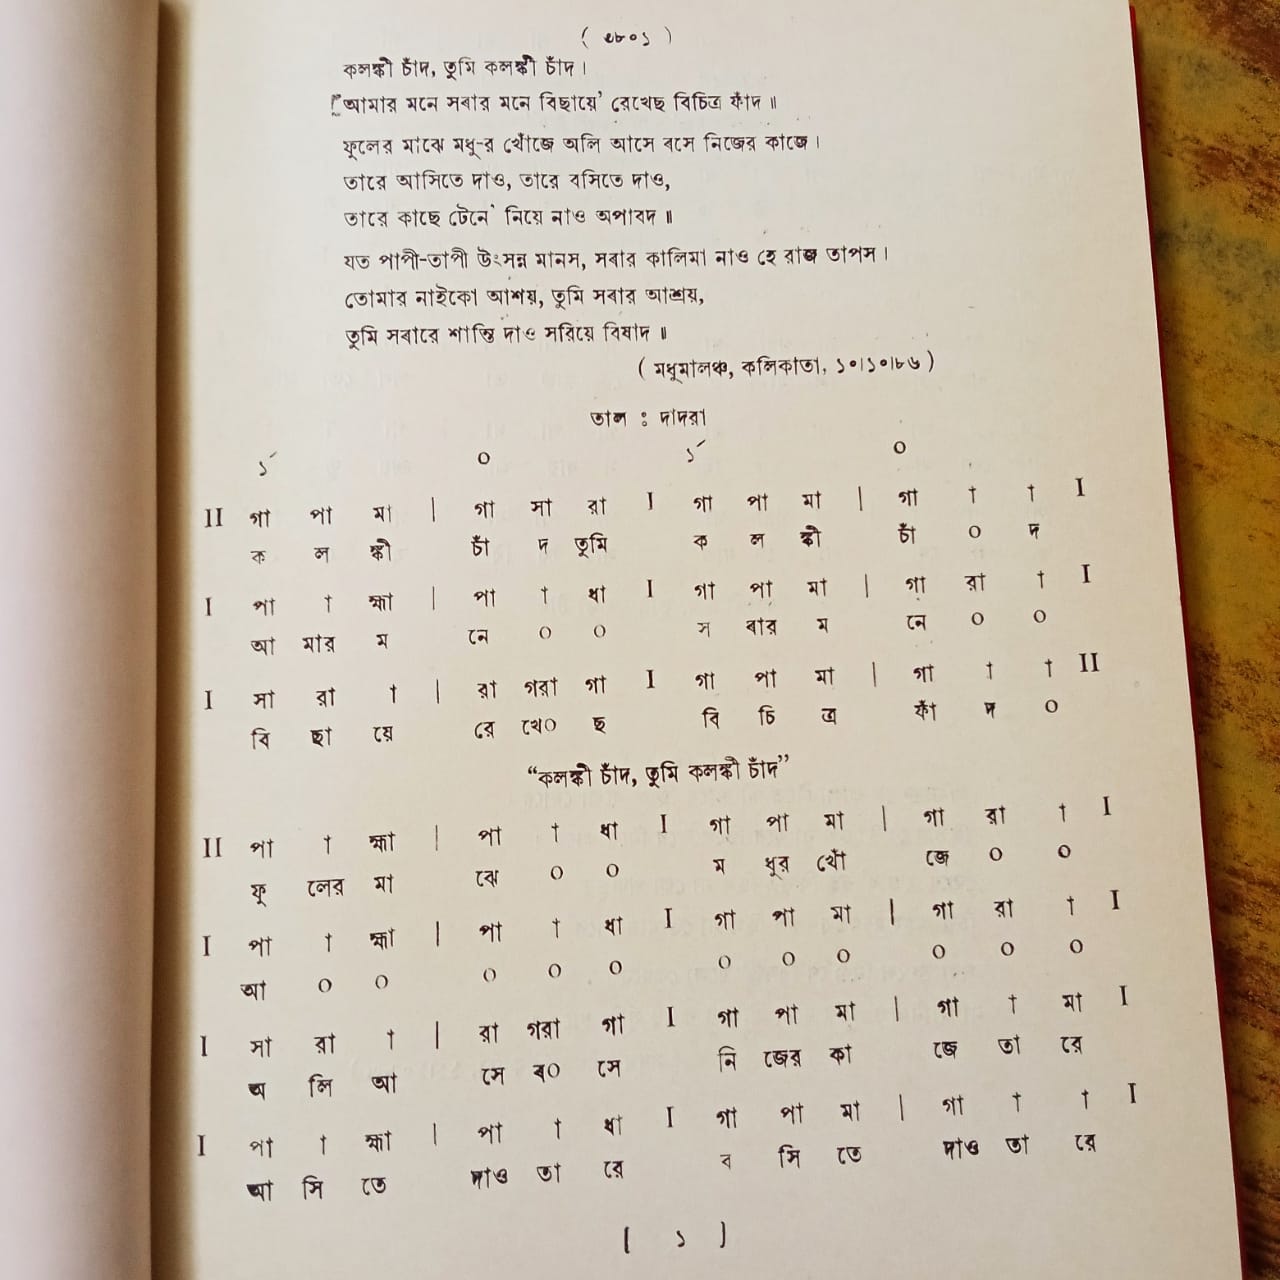 ( ২৮০১ )
কলঙ্কী চাঁদ, তুমি কলঙ্কী চাঁদ ।
আমার মনে সবার মনে বিছায়ে’ রেখেছ বিচিত্র ফাঁদ ॥
ফুলের মাঝে মধু-র খোঁজে অলি আসে বসে নিজের কাজে ।
তারে আসিতে দাও, তারে বসিতে দাও,
তারে কাছে টেনে’ নিয়ে নাও অপাবদ ॥
যত পাপী-তাপী উৎসন্ন মানস, সবার কালিমা নাও হে রাজ তাপস ।
তোমার নাইকো আশয়, তুমি সবার আশ্রয়,
তুমি সবারে শান্তি দাও সরিয়ে বিষাদ ॥
( মধুমালঞ্চ, কলিকাতা, ১০।১০।৮৬ )
তাল : দাদরা
১´ ০ ১´ ০
II গা পা মা | গা সা রা I গা পা মা | গা † † I
ক ল ঙ্কী চাঁ দ তুমি ক ল ঙ্কী চাঁ ০ দ
I পা † হ্মা | পা † ধা I গা পা মা | গা রা † I
আ মার ম নে ০ ০ স বার ম নে ০ ০
I সা রা † | রা গরা গা I গা পা মা | গা † † II
বি ছা য়ে রে খে০ ছ বি চি ত্র ফাঁ দ ০
“কলঙ্কী চাঁদ, তুমি কলঙ্কী চাঁদ”
II পা † হ্মা | পা † ধা I গা পা মা | গা রা † I
ফু লের মা ঝে ০ ০ ম ধুর খোঁ জে ০ ০
I পা † হ্মা | পা † ধা I গা পা মা | গা রা † I
আ ০ ০ ০ ০ ০ ০ ০ ০ ০ ০ ০
I সা রা † | রা গরা গা I গা পা মা | গা † মা I
অ লি আ সে ব০ সে নি জের কা জে তা রে
I পা † হ্মা | পা † ধা I গা পা মা | গা † † I
আ সি তে দাও তা রে ব সি তে দাও তা রে
[ ১ ]